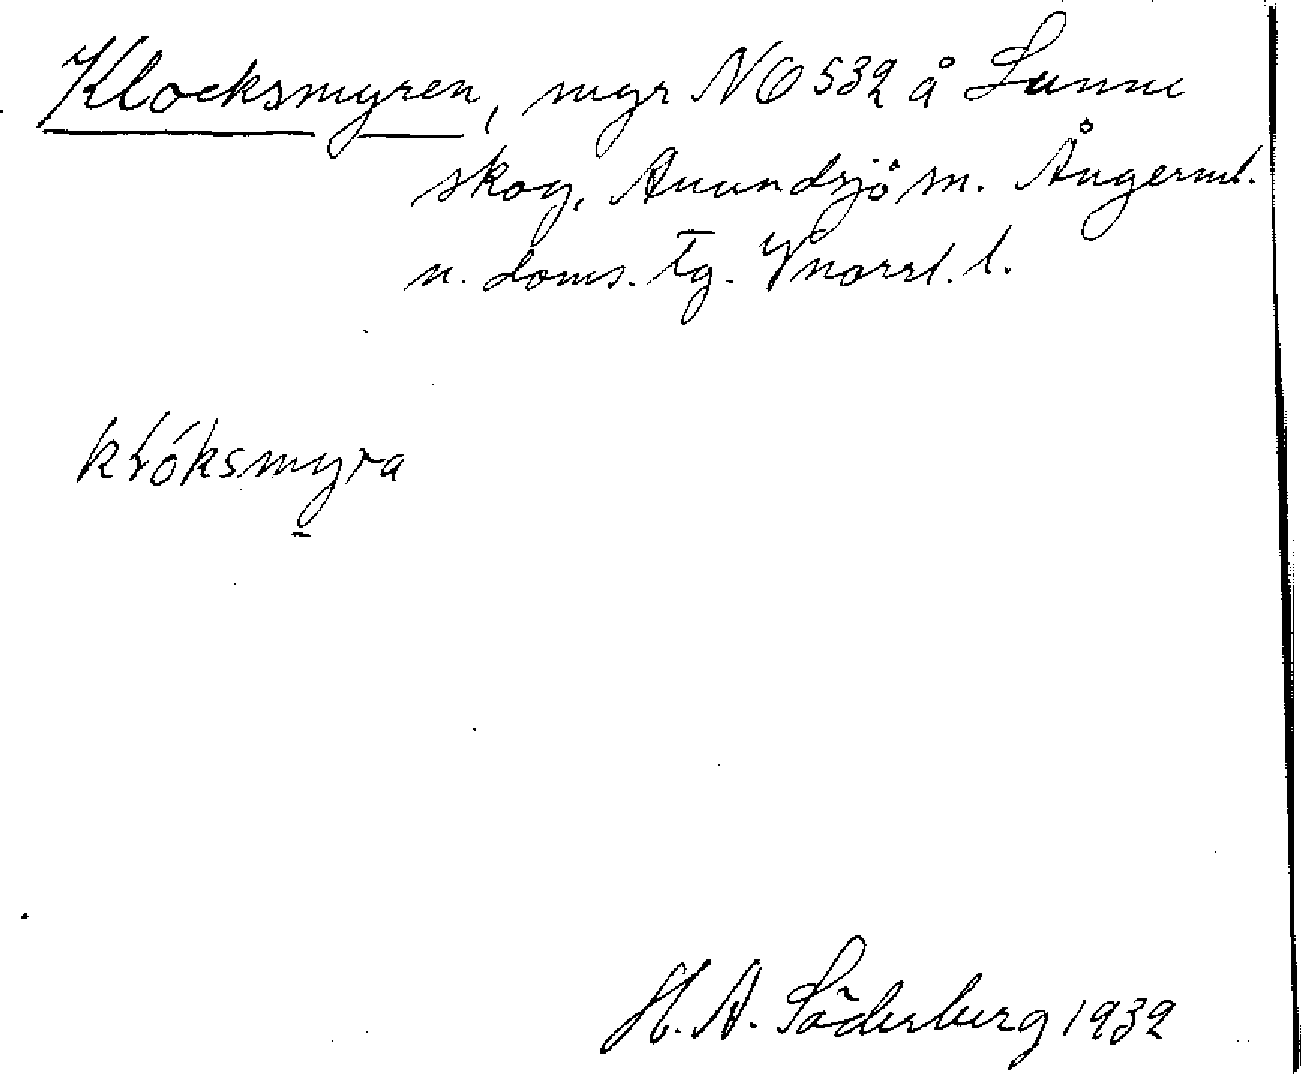 Klocksmyren, myr NO 532 å Lunne
skog, Anundsjö sn. Ångerml.
n. doms. tg. Vnorrl. l.
klóksmyra
H. A. Söderberg 1932